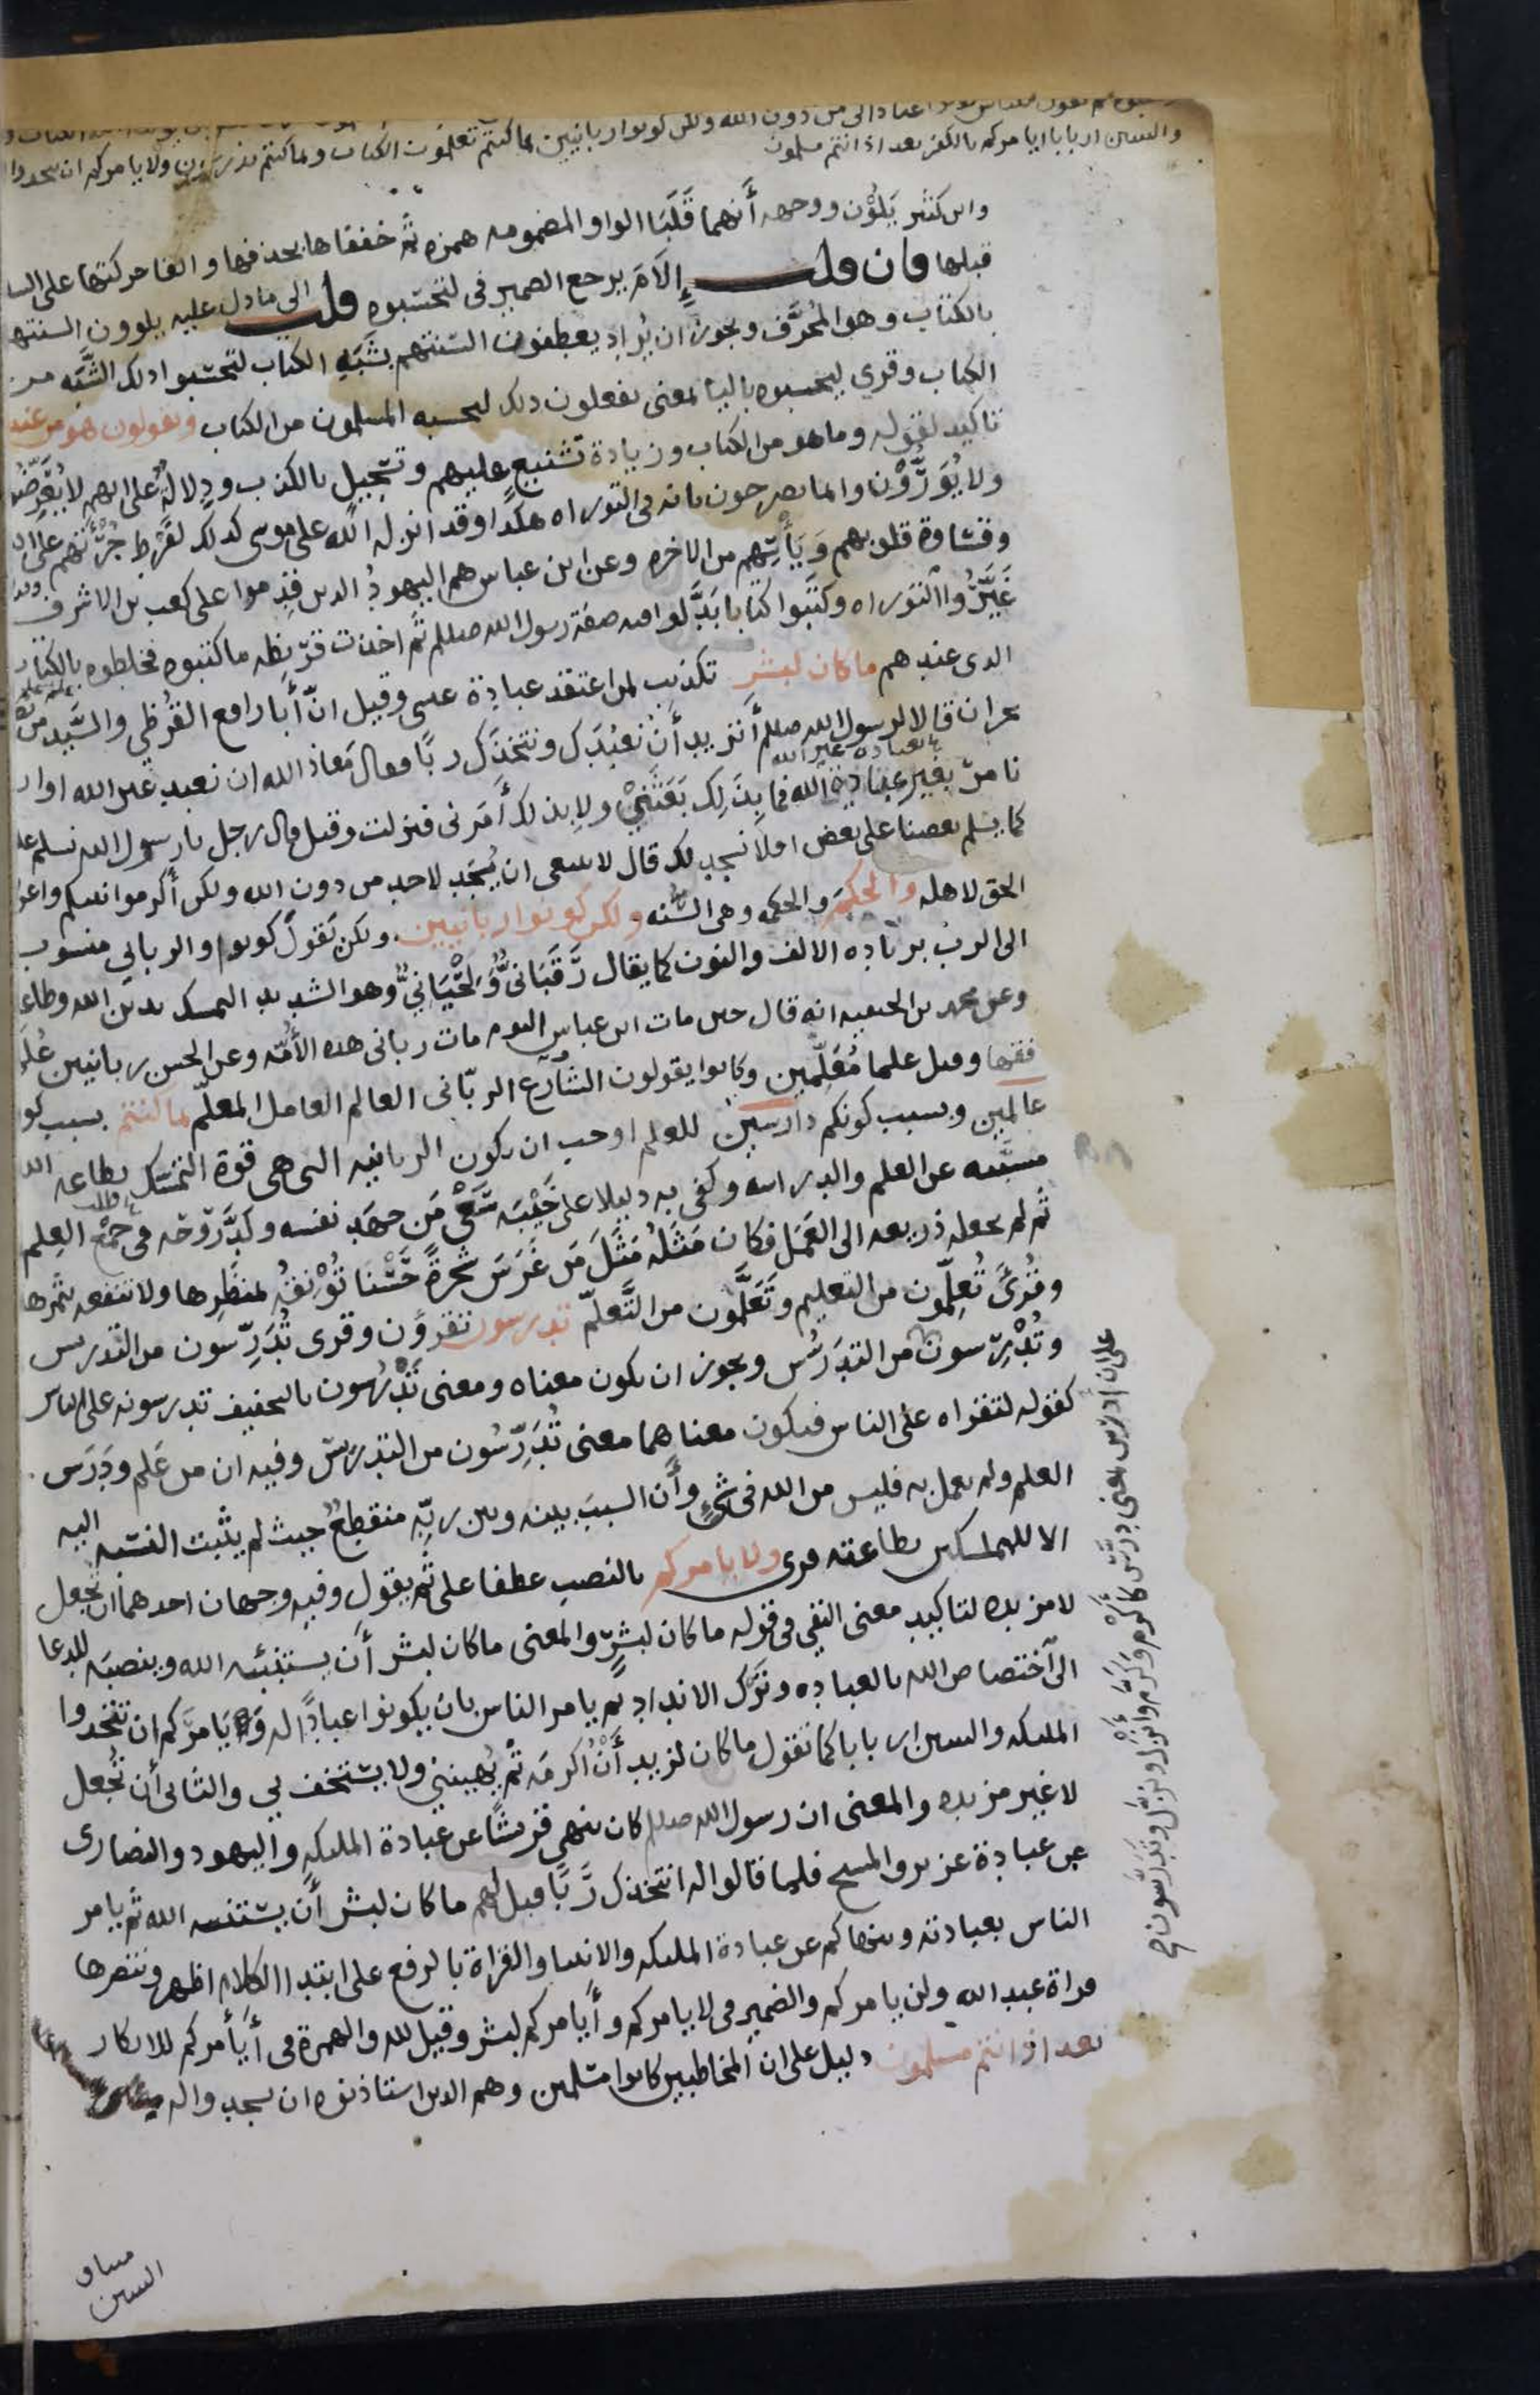 ثم يقول للناس كونوا عبادا لي من دون الله ولكن كونوا ربانيين بما كنتم تعلمون الكتاب وبما كنتم تدرسون ولا يامركم ان تتخدوا
والنبيين اربابا ايامركم بالكفر بعد اذ انتم مسلمون
وابن كثير يَلُوْن ووجهه أنهما قَلَبَا الواو المضمومه همزه ثم خففاها بحذفها والقا حركتها على السا
قبلها فان قلت إِلَامَ يرجع الضمير في لتحسبوه قلت الى ما دل عليه يلوون السنتهم
بالكتاب وهو المُحرَّف ويجوز ان يُراد يعطفون السنتهم بشَبَهِ الكتاب لتحسبوا ذلك الشَّبَه من
الكتاب وقرى ليحسبوه باليا بمعنى يفعلون ذلك ليحسبه المسلمون من الكتاب ويقولون هو من عند
تاكيد لقوله وما هو من الكتاب وزيادة تشنيع عليهم وتسجيل بالكذب ودلالة على انهم لا يُعَرِّضُون
ولا يُوَرُّوْن وانما يصرحون بانه في التوراه هكذا وقد انزله الله على موسى كذلك لفَرْط جُرْأتهم على الله
وقساوة قلوبهم ويَأسِهم من الاخره وعن ابن عباس هم اليهودُ الذين قدِموا على كعب بن الاشرف
غَيَّرُوا التوراه وكتبوا كتابا بَدَّلوا فيه صفة رسول الله صللم ثم اخذت قريظه ما كتبوه فخلطوه بالكتاب
الذي عندهم ما كان لبشر تكذيب لمن اعتقد عبادة عيسى وقيل انّ أبا رافع القُرظي والسَّيد من
نجران قالا لرسول الله صللم أتريد أن نعْبُدَك ونتخذك ربًا فقال معاذ الله ان نعبد غير الله او ان
نامر بغير عبادة الله فما بِذَلِك بَعَثَنِيْ ولا بذلك أَمَرني فنزلت وقيل قال رجل يا رسول الله نسلم عليك
كما يسلم بعضنا على بعض افلا نسجد لك قال لا ينبغي ان يُسْجَد لاحد من دون الله ولكن أكرموا نبيكم واعرفوا
الحق لاهله والحكم والحكمه وهي السنّه ولكن كونوا ربانيين ولكن يَقولُ كونوا والرباني منسوب
الى الرب بزياده الالف والنون كما يقال رَقَبَانيٌّ وَلِحْيَانيٌّ وهو الشديد التمسك بدين الله وطاعته
وعن محمد بن الحنفيه انه قال حين مات ابن عباس اليوم مات رباني هذه الأمّه وعن الحسن ربانيين عُلَمَا
فقها وقيل علما مُعَلِّمين وكانوا يقولون الشارع الربّاني العالم العامل المعلّم بما كنتم بسبب كونكم
عالمين وبسبب كونكم دارسين للعلم اوجب ان يكون الربانيه التي هي قوة التمسّك بطاعه الله
مسبّبه عن العلم والدراسه وكفى به دليلا على خَيْبَه سَعْي مَن جهد نفسه وكَدَّ رَوْحَه في جمع العِلم
ثم لم يجعله ذريعه الى العَمَل فكان مَثَلُه مَثَلَ مَن غَرَسَ شجرةً حَسْنَا تُؤْنِقُه بمنظرها ولا تنفعه بثمرها
وقُرئ تُعلِّمون من التعليم وتَعَلَّمُون من التَّعلّم تدرسون تقرؤن وقرى تُدَرِّسون من التدريس
وتُدْرِسون من التدَرُّس ويجوز ان يكون معناه ومعنى تَدْرُسون بالتخفيف تدرسونه على الناس
كقوله لتقراه على الناس فيكون معناهما معنى تُدَرِّسُون من التدريس وفيه ان من عَلِم ودَرَس
العلم ولم يعمل به فليس من الله في شيءٍ وأن السببَ بينه وبين ربّه منقطعٌ حيث لم يثبت النسبه اليه
الا للمتمسكين بطاعته قرى ولا يامركم بالنصب عطفا على ثم يقول وفيه وجهان احدهما ان تجعل
لا مزيده لتاكيد معنى النفي في قوله ما كان لبشر والمعنى ما كان لبشر أن يستنبئه الله وينصبَه للدعا
الى اختصاص الله بالعباده وتَرْك الانداد ثم يامر الناس بان يكونوا عبادًا له ويَامرَكم ان تتخذوا
الملىكه والنبيين اربابا كما تقول ما كان لزيد أَنْ أُكرمَه ثم يُهينني ولا يستخف بي والثاني أن تُجعل
لا غير مزيده والمعنى ان رسول الله صللم كان ينهى قريشًا عن عبادة الملىكه واليهود والنصارى
عن عبادة عزير والمسيح فلما قالوا له انتخذك رَبًّا قيل لهم ما كان لبشر أن يستنبئه الله ثم يامر
الناس بعبادته وينهاكم عن عبادة الملىكه والانبيا والقراة بالرفع على ابتدا الكلام اظهر وتنصرها
قراة عبد الله ولن يامركم والضمير في لا يامركم وأيامركم لبشر وقيل لله والهمزة في أيَأمركم للانكار
بعد اذ انتم مسلمون دليل على ان المخاطبين كانوا مسلمين وهم الذين استاذنوه ان يسجدوا له
على ان ادرس بمعنى درّس كأكرم وكرّم وأنزل ونزّل وتدرّسون
ميثاق
النبيين